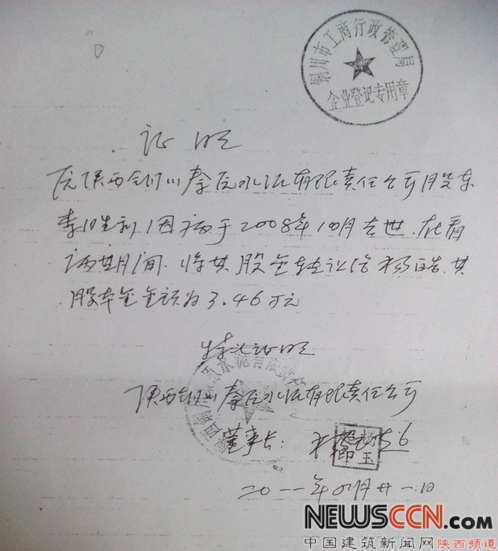 铜川市工商行政管理局
企业登记专用章
证明
陕西铜川秦岭水泥有限责任公司股东
李胜利因病于2008年10月去世.在看
病其间.将其股金转让给杨皓.其
股本金金额为3.46万元
特此证明
陕西铜川秦岭水泥有限责任公司
董事长:
印玉
二0一一年 月廿一日
NEWSCCN.COM
中国建筑新闻网陕西频道